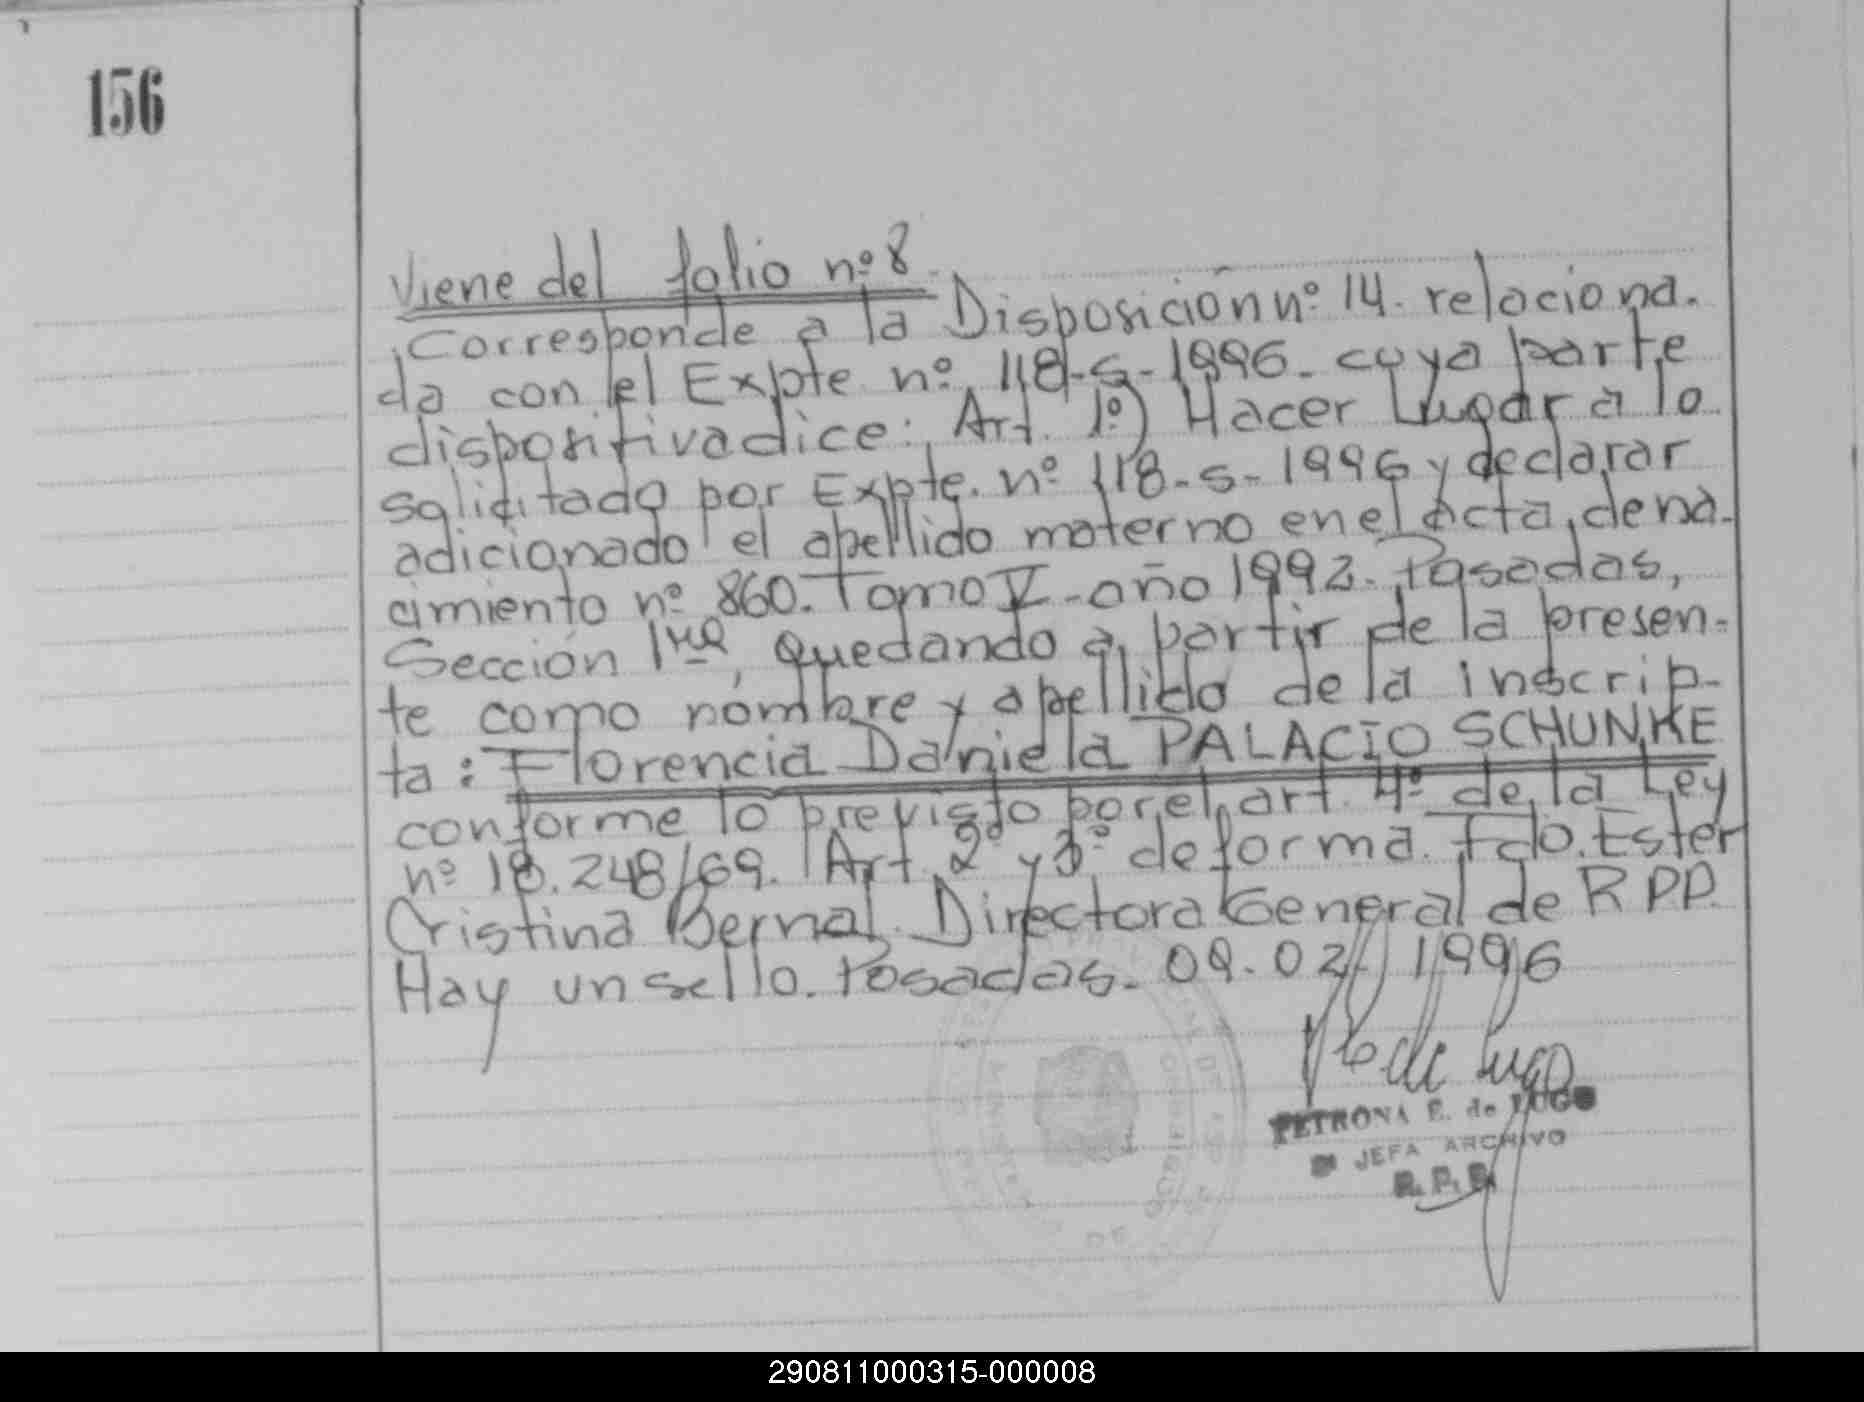 156
Viene del folio nº 8.
Corresponde a la Disposición nº 14. relaciona.
da con el Expte. nº 118-S-1996. cuya parte
dispositiva dice: Art. 1º) Hacer Lugar a lo
solicitado por Expte. nº 118-S-1996 y declarar
adicionado el apellido materno en el acta de na-
cimiento nº 860. Tomo V - año 1992. Posadas,
Sección 1ra, quedando a partir de la presen-
te como nombre y apellido de la inscrip-
ta: Florencia Daniela PALACIO SCHUNKE
conforme lo previsto por el art. 4º de la Ley
nº 18.248/69. Art. 2º y 3º de forma. Fdo. Ester
Cristina Bernal. Directora General de R P P.
Hay un sello. Posadas. 09.02.1996
PETRONA E. de LUGO
JEFA ARCHIVO
R. P. P.
290811000315-000008